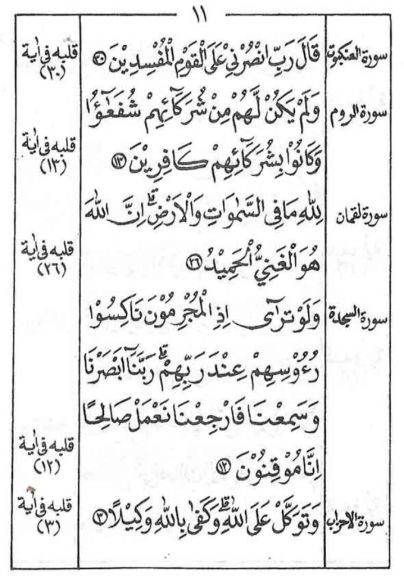 ١١
سورة العنكبوت
قَالَ رَبِّ انْصُرْنِيْ عَلَى الْقَوْمِ الْمُفْسِدِيْنَ ٣٠
قلبه فى أية (٣٠)
سورة الروم
وَلَمْ يَكُنْ لَّهُمْ مِنْ شُرَكَآئِهِمْ شُفَعَٰٓؤُا
وَكَانُوْا بِشُرَكَآئِهِمْ كَافِرِيْنَ ١٣
قلبه فى أية (١٣)
سورة لقمان
لِلّٰهِ مَا فِى السَّمٰوَاتِ وَالْاَرْضِ ۗ اِنَّ اللّٰهَ
هُوَ الْغَنِيُّ الْحَمِيْدُ ٢٦
قلبه فى أية (٢٦)
سورة السجدة
وَلَوْ تَرٰٓى اِذِ الْمُجْرِمُوْنَ نَاكِسُوْا
رُءُوْسِهِمْ عِنْدَ رَبِّهِمْ ۗ رَبَّنَآ اَبْصَرْنَا
وَسَمِعْنَا فَارْجِعْنَا نَعْمَلْ صَالِحًا
اِنَّا مُوْقِنُوْنَ ١٢
قلبه فى أية (١٢)
سورة الاحزاب
وَتَوَكَّلْ عَلَى اللّٰهِ ۗ وَكَفٰى بِاللّٰهِ وَكِيْلًا ٣
قلبه فى أية (٣)